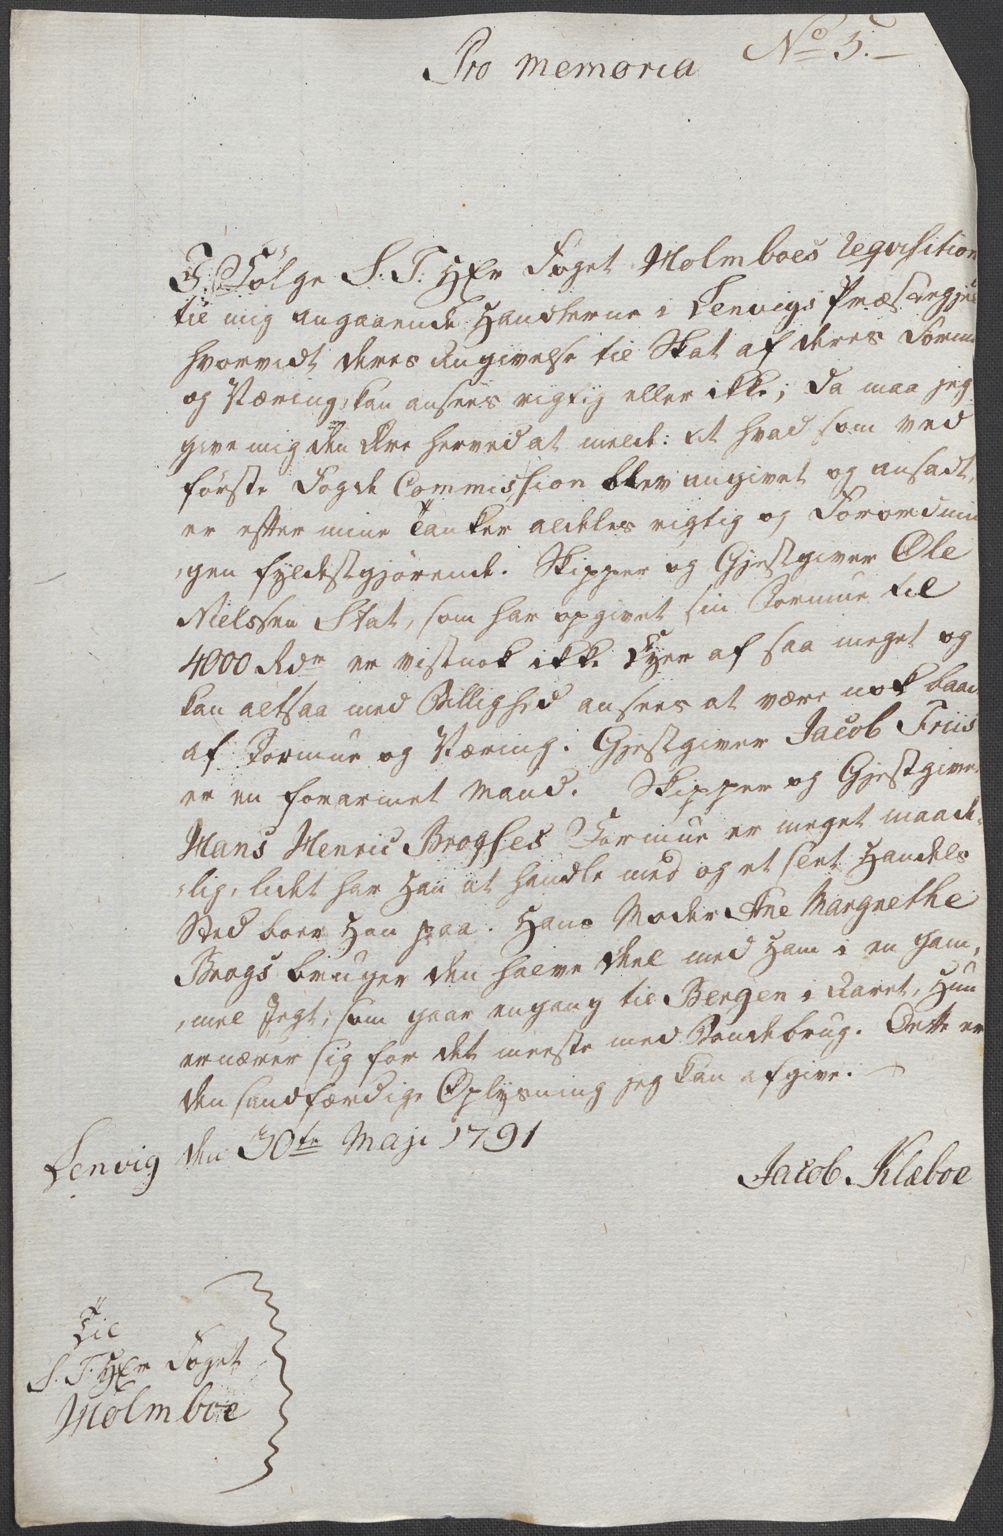 No 5.
Pro memoria
I Følge S. T. Hr Foget Holmboes requisition
til mig angaaende Handlerne i Lenvigs Præstegjel
hvorvidt deres Angivelse til Skat af deres Formue
og Næring, kan ansees rigtig eller ikke; Da maa jeg
give mig den Ære herved at melde: At hvad som ved
første Fogde Commission blev angivet og ansadt,
er efter mine Tanker aldeles rigtig og Forordnin
gen fyldestgjørende. Skipper og Gjestgiver Ole
Nielssen Stat, som har opgivet sin Formue til
4000 Rdr er vistnok ikke Eyer af saa meget og
kan altsaa med Billighed ansees at være nok baade
af Formue og Næring. Gjestgiver Jacob Friis
er en forarmet Mand. Skipper og Gjestgiver
Hans Henric Brogses Formue er meget maade,
,lig, lidet har Han at handle med og et slet Handels
Sted boer Han paa. Hans Moder Ane Margrethe
Brogs bruger den halve Deel med Ham i en gam,
,mel Jegt, som gaar engang til Bergen i Aaret, Hun
ernærer sig for det meeste med Bondebrug. Dette er
den sandfærdige Oplysning jeg kan afgive.
Lenvig den 30te Maji 1791
Jacob Klæboe
Til
S. T. Hr Foget
Holmboe